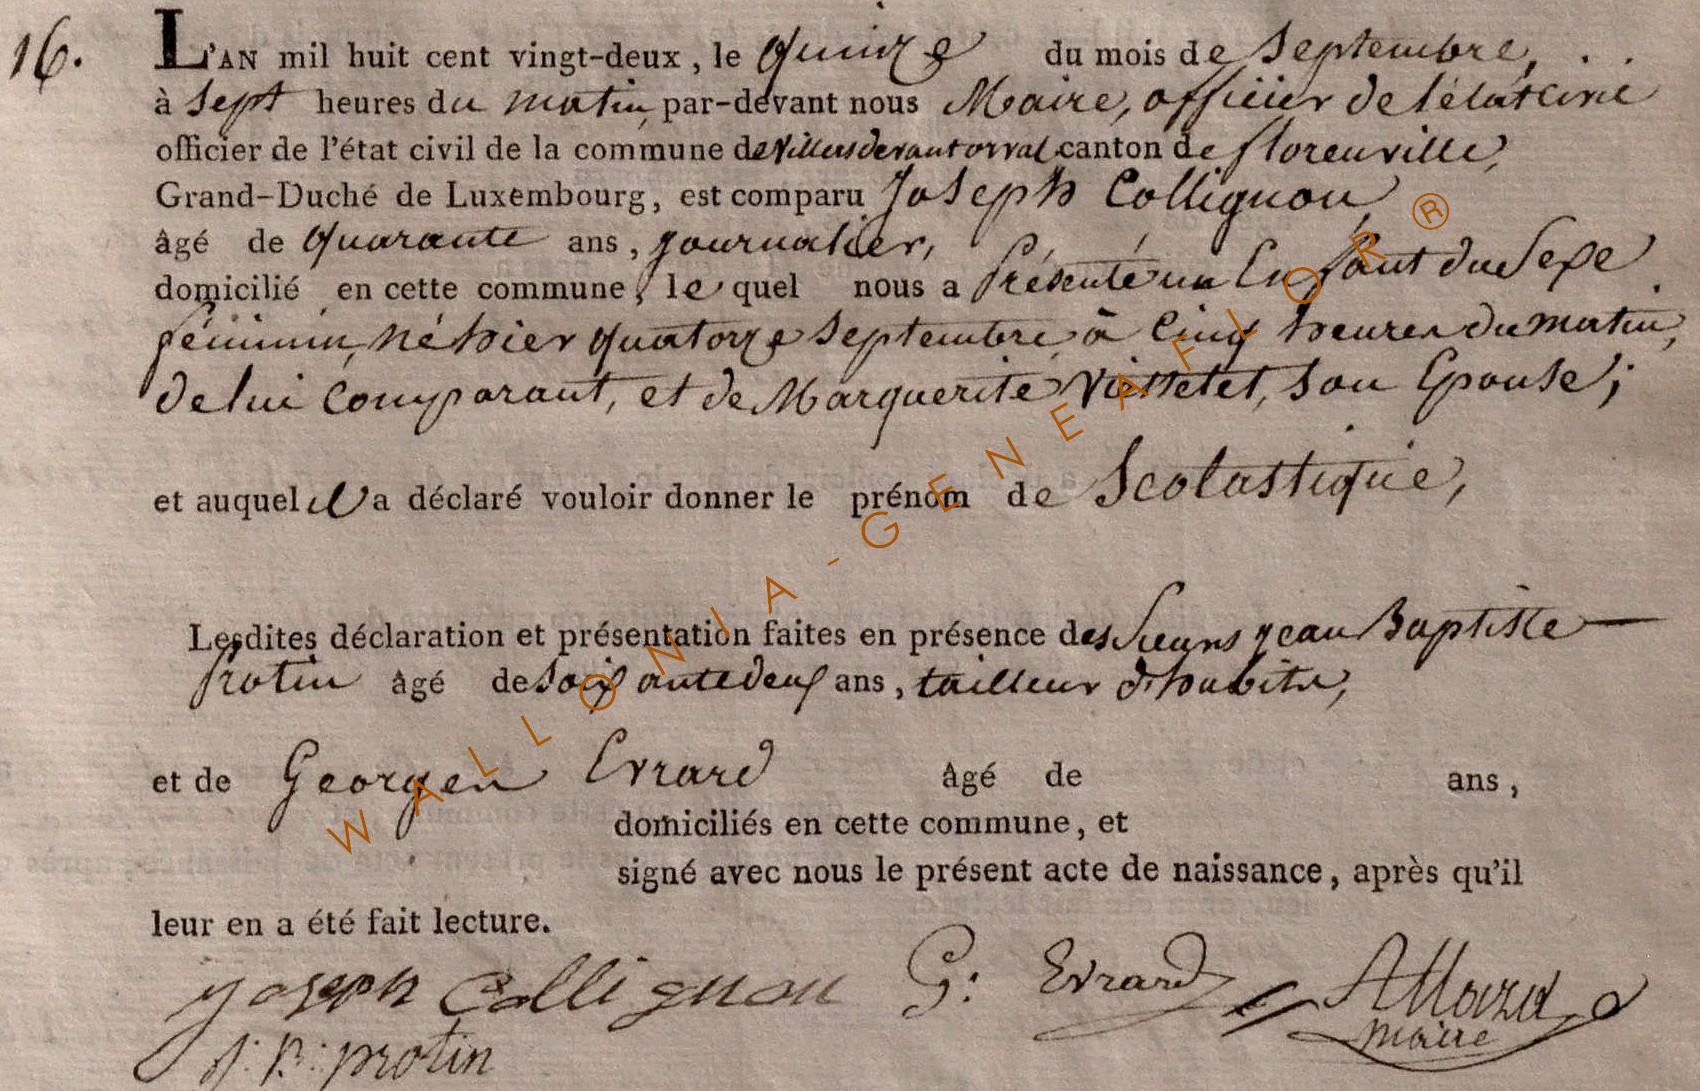 16.
L'AN mil huit cent vingt-deux, le quinze du mois de Septembre,
à Sept heures du matin, par-devant nous Maire, officier de l'état civil
officier de l'état civil de la commune de Villers devant orval canton de florenville,
Grand-Duché de Luxembourg, est comparu Joseph Collignon,
âgé de quarante ans, journalier,
domicilié en cette commune, le quel nous a Présenté un Enfant du Sexe
féminin, né hier quatorze Septembre, à Cinq heures du matin,
de lui Comparant, et de Marguerite, son Epouse;
et auquel il a déclaré vouloir donner le prénom de Scolastique,
Lesdites déclaration et présentation faites en présence des Sieurs jean Baptiste
Protin âgé de Soixante deux ans, tailleur d'habits,
et de Georges Evrard âgé de ans,
domiciliés en cette commune, et
signé avec nous le présent acte de naissance, après qu'il
leur en a été fait lecture.
joseph Collignon G: Evrard
maire
J: B: protin
WALLONIA-GENEAFLOR®